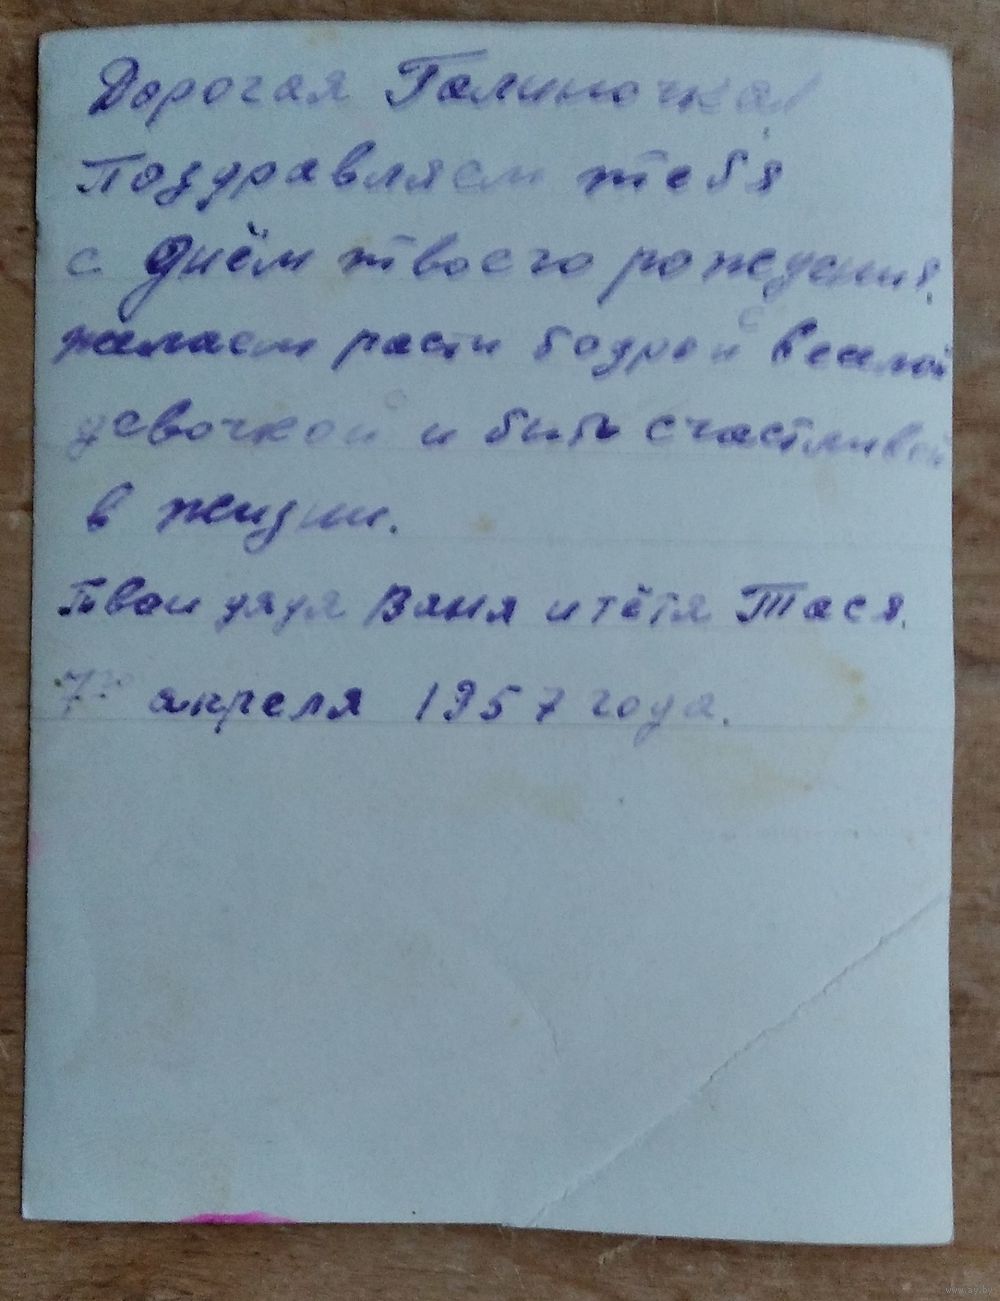 Дорогая Галиночка!
Поздравляем тебя
с Днём твоего рождения.
желаем расти бодрой веселой
девочкой и быть счастливой
в жизни.
Твои дядя Ваня и тётя Тася.
7го апреля 1957 года.
www.ay.by